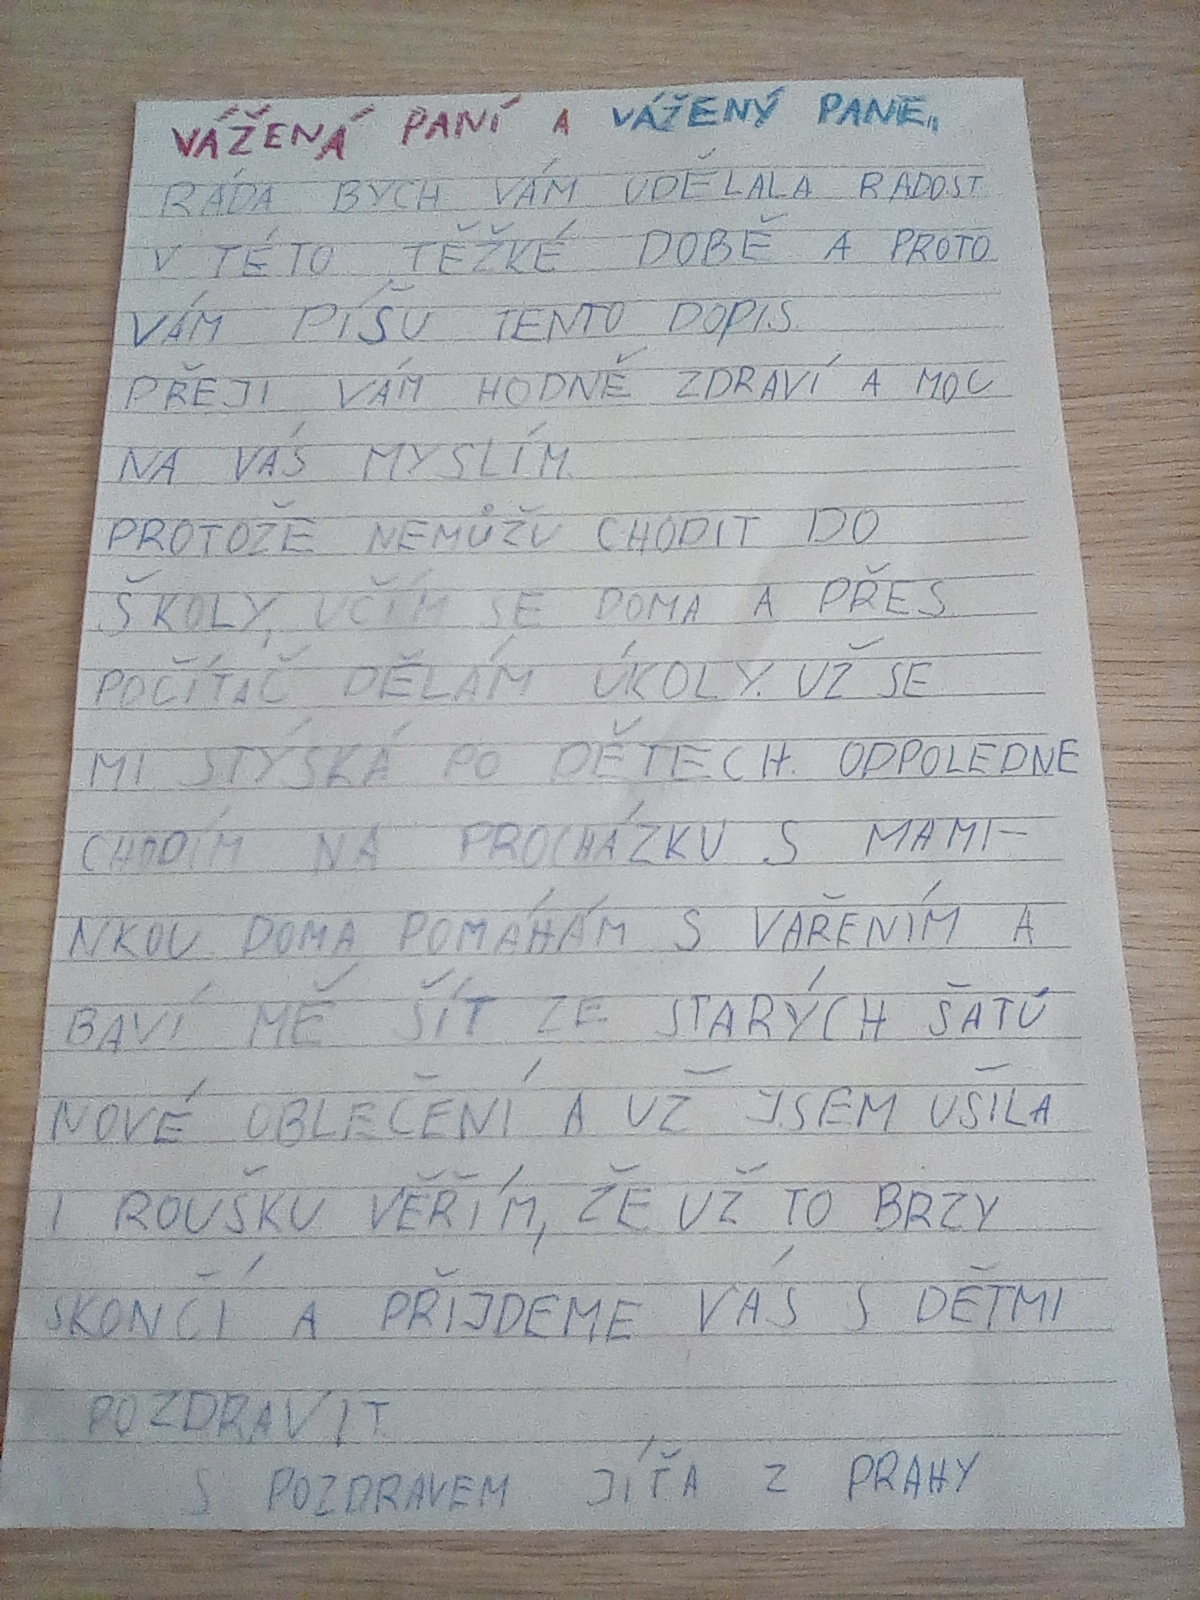 VÁŽENÁ PANÍ A VÁŽENÝ PANE,,
RÁDA BYCH VÁM UDĚLALA RADOST
V TÉTO TĚŽKÉ DOBĚ A PROTO
VÁM PÍŠU TENTO DOPIS.
PŘEJI VÁM HODNĚ ZDRAVÍ A MOC
NA VÁS MYSLÍM.
PROTOŽE NEMŮŽU CHODIT DO
ŠKOLY, UČÍM SE DOMA A PŘES
POČÍTAČ DĚLÁM ÚKOLY. UŽ SE
MI STÝSKÁ PO DĚTECH. ODPOLEDNE
CHODÍM NA PROCHÁZKU S MAMI-
NKOU. DOMA POMÁHÁM S VAŘENÍM A
BAVÍ MĚ ŠÍT ZE STARÝCH ŠATŮ
NOVÉ OBLEČENÍ A UŽ JSEM UŠILA
I ROUŠKU. VĚŘÍM, ŽE UŽ TO BRZY
SKONČÍ A PŘIJDEME VÁS S DĚTMI
POZDRAVIT.
S POZDRAVEM JÍŤA Z PRAHY